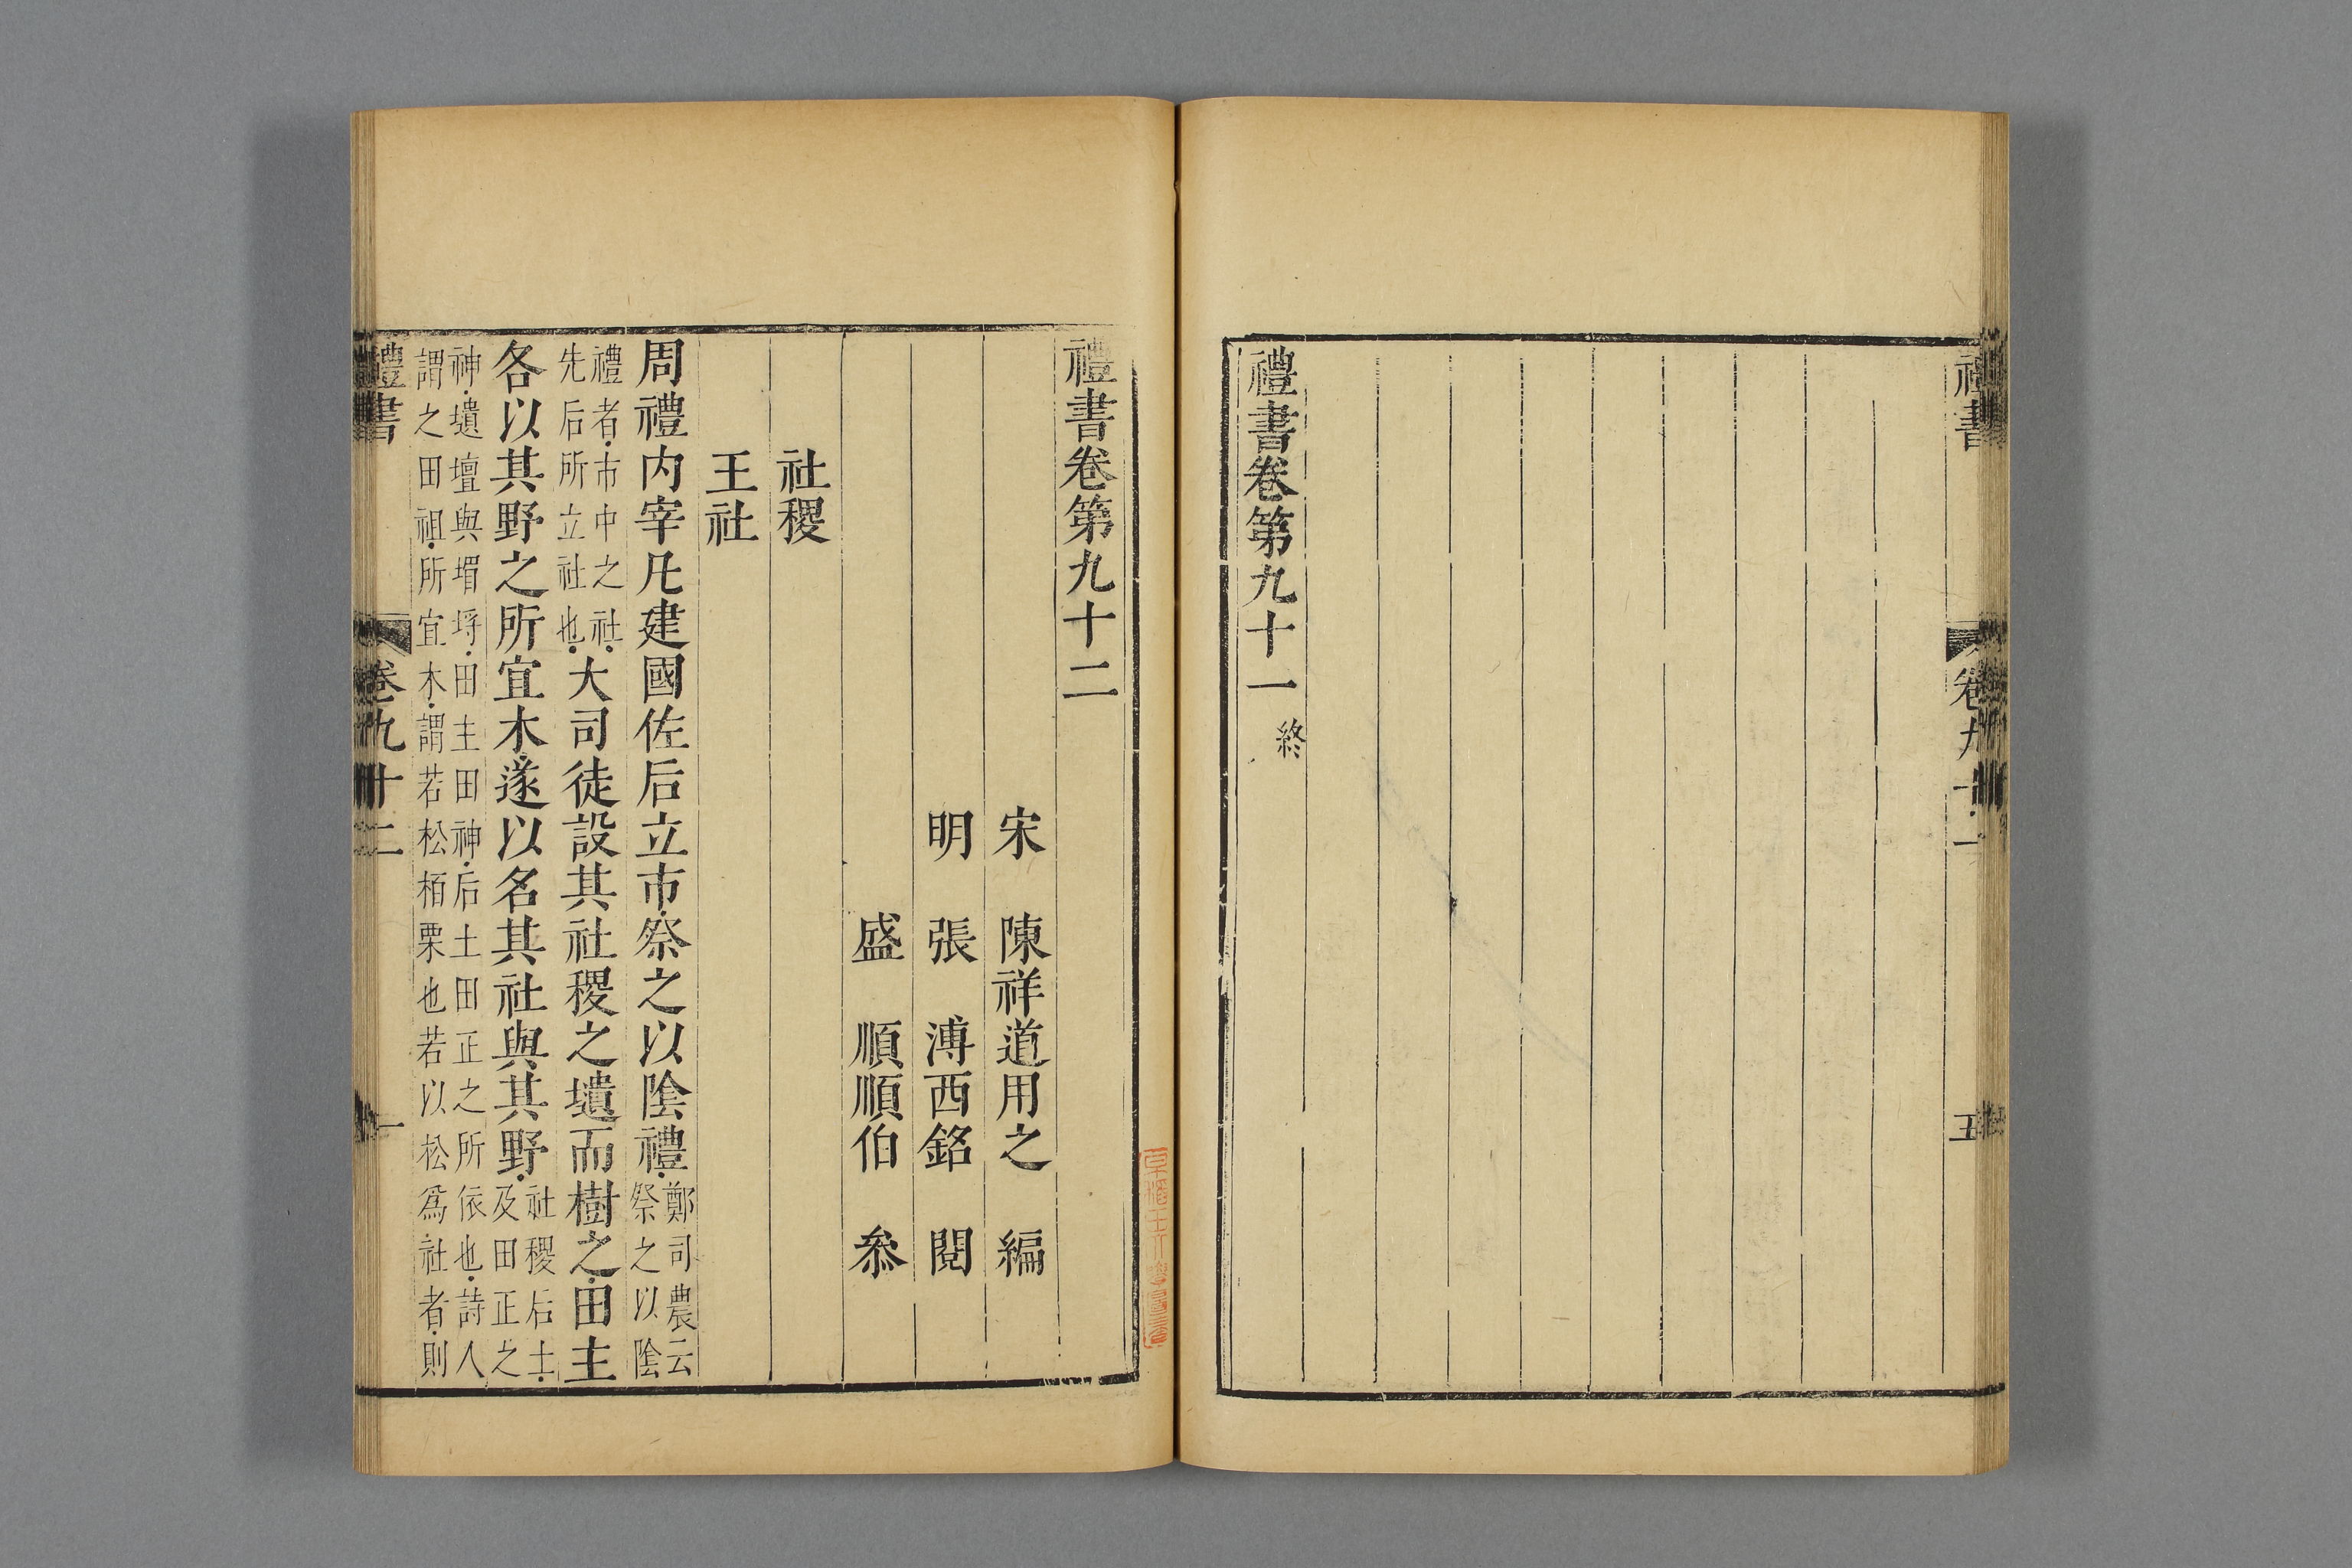 禮書
卷九十一
五
禮書卷第九十一終
禮書卷第九十二
宋 陳祥道用之 編
明 張 溥西銘 閱
盛 順順伯 叅
社稷
王社
周禮内宰凡建國佐后立市祭之以陰禮鄭司農云
祭之以陰
禮者市中之社
先后所立社也大司徒設其社稷之壝而樹之田主
各以其野之所宜木遂以名其社與其野社稷后土
及田正之
神壝壇與堳埒田主田神后土田正之所依也詩人
謂之田祖所宜木謂若松栢栗也若以松爲社者則
禮書
卷九十二
一